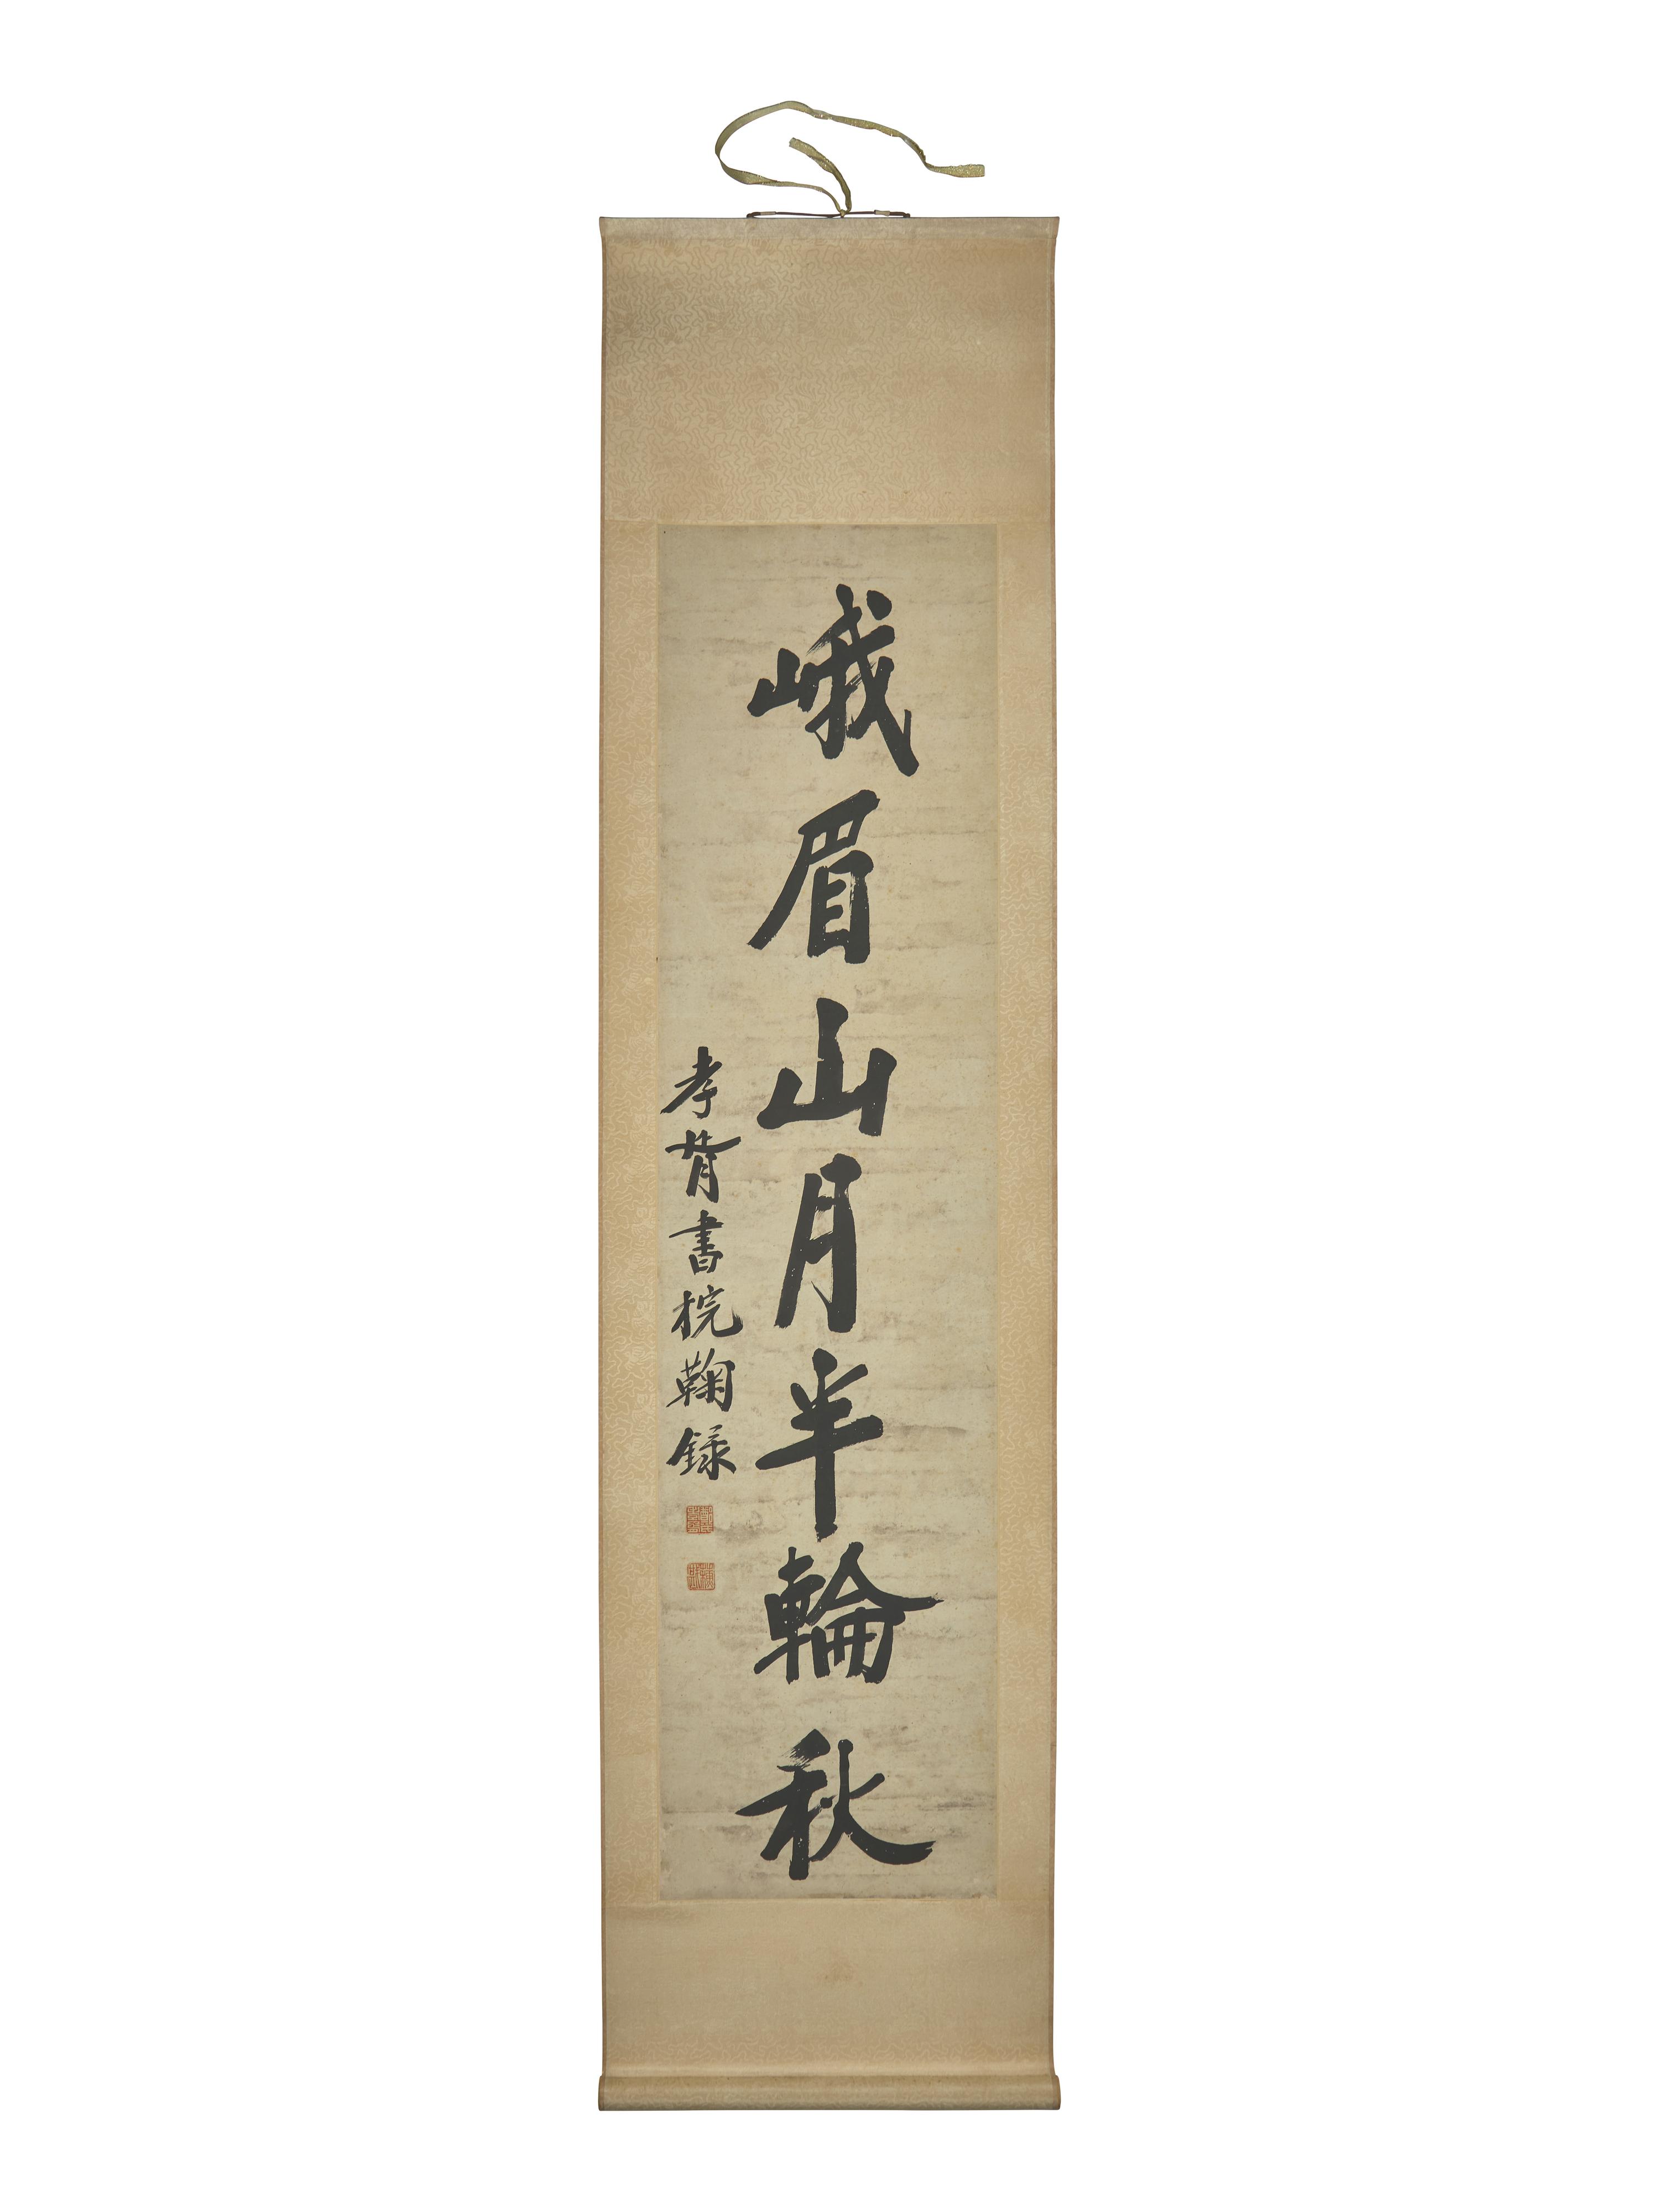 峨眉山月半輪秋
孝胥書㭇鞠録